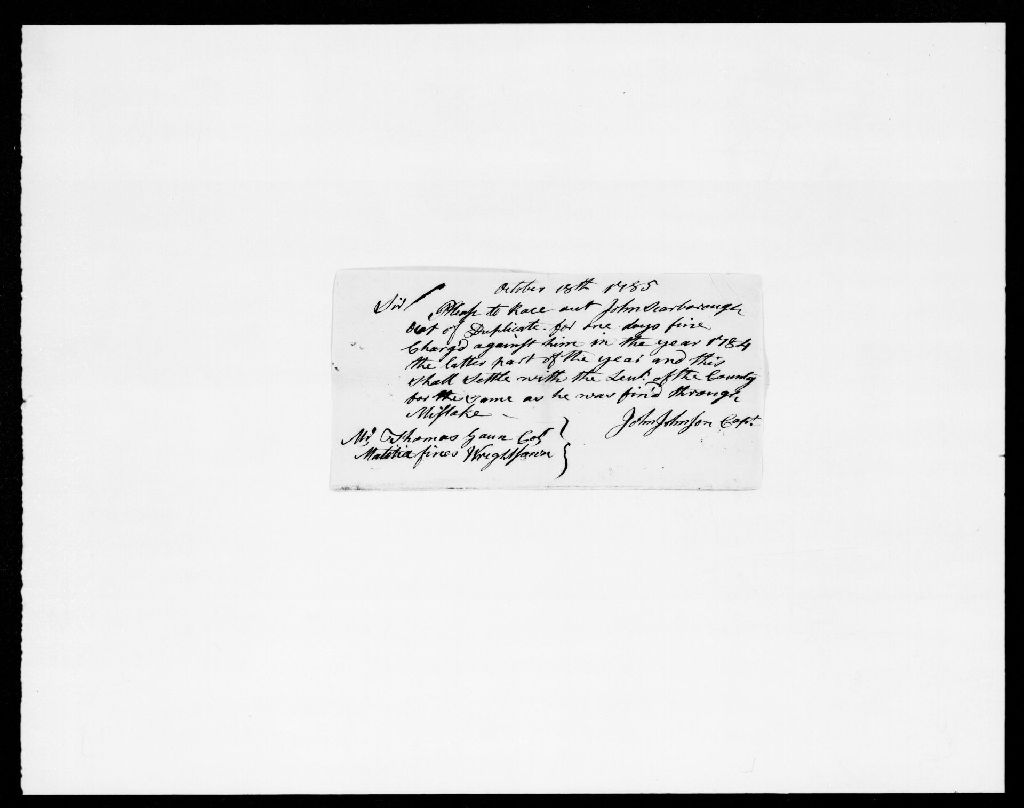 October 18th 1785
Sir Please to Race out John Scarborough
Out of Duplicate for one days fine
Charg'd against him in the year 1784
the latter part of the year and this
shall Settle with the Leut. of the County
for the same as he was fin'd through
Mistake
John Johnson Capt.
Mr. Thomas Gaun Col
Malitia fines Wrightstown